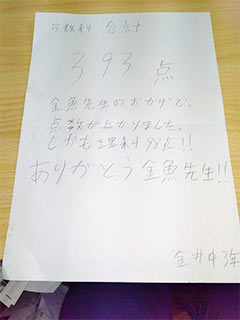 5教科 合計
393 点
金魚先生のおかげで、
点数が上がりました。
しかも理科98点!!
ありがとう金魚先生!!
金井中3年